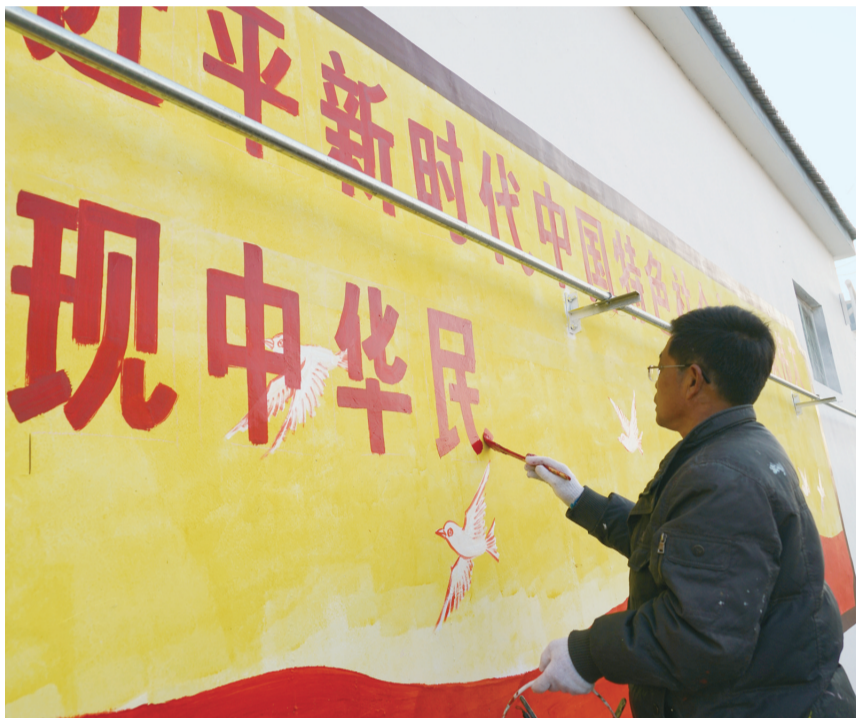 近平新时代中国特色社会
现中华民